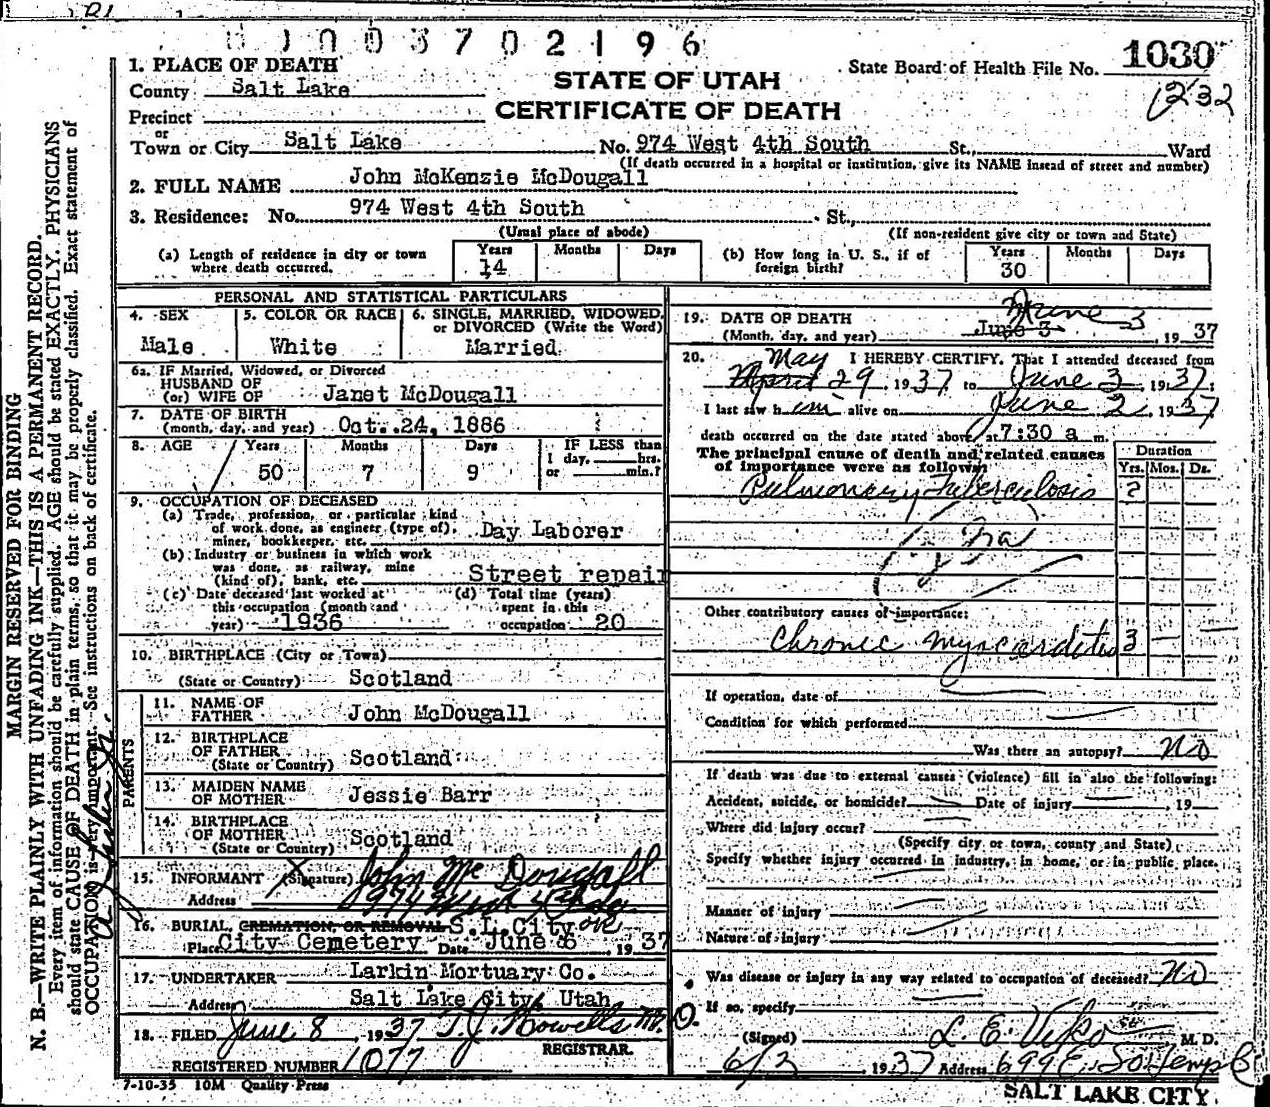 0 1 0 0 3 7 0 2 1 9 6
1. PLACE OF DEATH
STATE OF UTAH
CERTIFICATE OF DEATH
State Board of Health File No. 1030
1232
County Salt Lake
Precinct
or
Town or City Salt Lake No. 974 West 4th South St., Ward
(If death occurred in a hospital or institution, give its NAME insead of street and number)
2. FULL NAME John McKenzie McDougall
3. Residence: No. 974 West 4th South St.,
(Usual place of abode) (If non-resident give city or town and State)
(a) Length of residence in city or town where death occurred. Years 14 Months Days
(b) How long in U. S., if of foreign birth? Years 30 Months Days
PERSONAL AND STATISTICAL PARTICULARS
4. SEX Male
5. COLOR OR RACE White
6. SINGLE, MARRIED, WIDOWED, or DIVORCED (Write the Word) Married
6a. IF Married, Widowed, or Divorced
HUSBAND OF
(or) WIFE OF Janet McDougall
7. DATE OF BIRTH
(month, day, and year) Oct. 24, 1886
8. AGE Years 50 Months 7 Days 9
IF LESS than
1 day, hrs.
or min.?
9. OCCUPATION OF DECEASED
(a) Trade, profession, or particular kind
of work done, as engineer (type of),
miner, bookkeeper, etc. Day Laborer
(b) Industry or business in which work
was done, as railway, mine
(kind of), bank, etc. Street repair
(c) Date deceased last worked at
this occupation (month and
year) 1936
(d) Total time (years)
spent in this
occupation 20
10. BIRTHPLACE (City or Town)
(State or Country) Scotland
PARENTS
11. NAME OF
FATHER John McDougall
12. BIRTHPLACE
OF FATHER
(State or Country) Scotland
13. MAIDEN NAME
OF MOTHER Jessie Barr
14. BIRTHPLACE
OF MOTHER
(State or Country) Scotland
15. INFORMANT X (Signature) John McDougall
Address 974 West 4th So
16. BURIAL, CREMATION, OR REMOVAL S. L. City
Place City Cemetery Date June 6 1937
17. UNDERTAKER Larkin Mortuary Co.
Address Salt Lake City, Utah
18. FILED June 8 1937 T. J. Howells M. D.
REGISTRAR.
REGISTERED NUMBER 1077
7-10-35 10M Quality Press
19. DATE OF DEATH
(Month, day, and year) June 3 June 3, 1937
20. I HEREBY CERTIFY, That I attended deceased from
May April 29 1937 to June 3 1937;
I last saw him alive on June 2 1937
death occurred on the date stated above, at 7:30 a m.
The principal cause of death and related causes
of importance were as follows:
Duration
Yrs. Mos. Ds.
Pulmonary Tuberculosis 2
Other contributory causes of importance:
Chronic myocarditis 3
If operation, date of
Condition for which performed
Was there an autopsy? No
If death was due to external causes (violence) fill in also the following:
Accident, suicide, or homicide? Date of injury , 19
Where did injury occur?
(Specify city or town, county and State)
Specify whether injury occurred in industry, in home, or in public place.
Manner of injury
Nature of injury
Was disease or injury in any way related to occupation of deceased? No
If so, specify
(Signed) L. E. Viko M. D.
6/3 1937 Address 699 E. So. Temple
SALT LAKE CITY
MARGIN RESERVED FOR BINDING
N. B.—WRITE PLAINLY WITH UNFADING INK—THIS IS A PERMANENT RECORD.
Every item of information should be carefully supplied. AGE should be stated EXACTLY. PHYSICIANS
should state CAUSE OF DEATH in plain terms, so that it may be properly classified. Exact statement of
OCCUPATION is very important. See instructions on back of certificate.